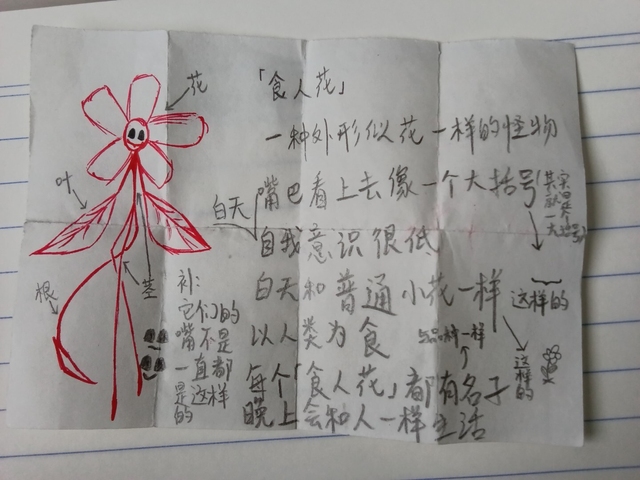 「食人花」
一种外形似花一样的怪物
嘴巴看上去像一个大括号
自我意识很低
白天和普通小花一样
以人类为食
每个「食人花」都有名子
晚上会和人一样生活
花
叶
根
茎
白天
补:
它们的
嘴不是
一直都
是这样
的
其实
就是
一
大
这样的
这样的
一样